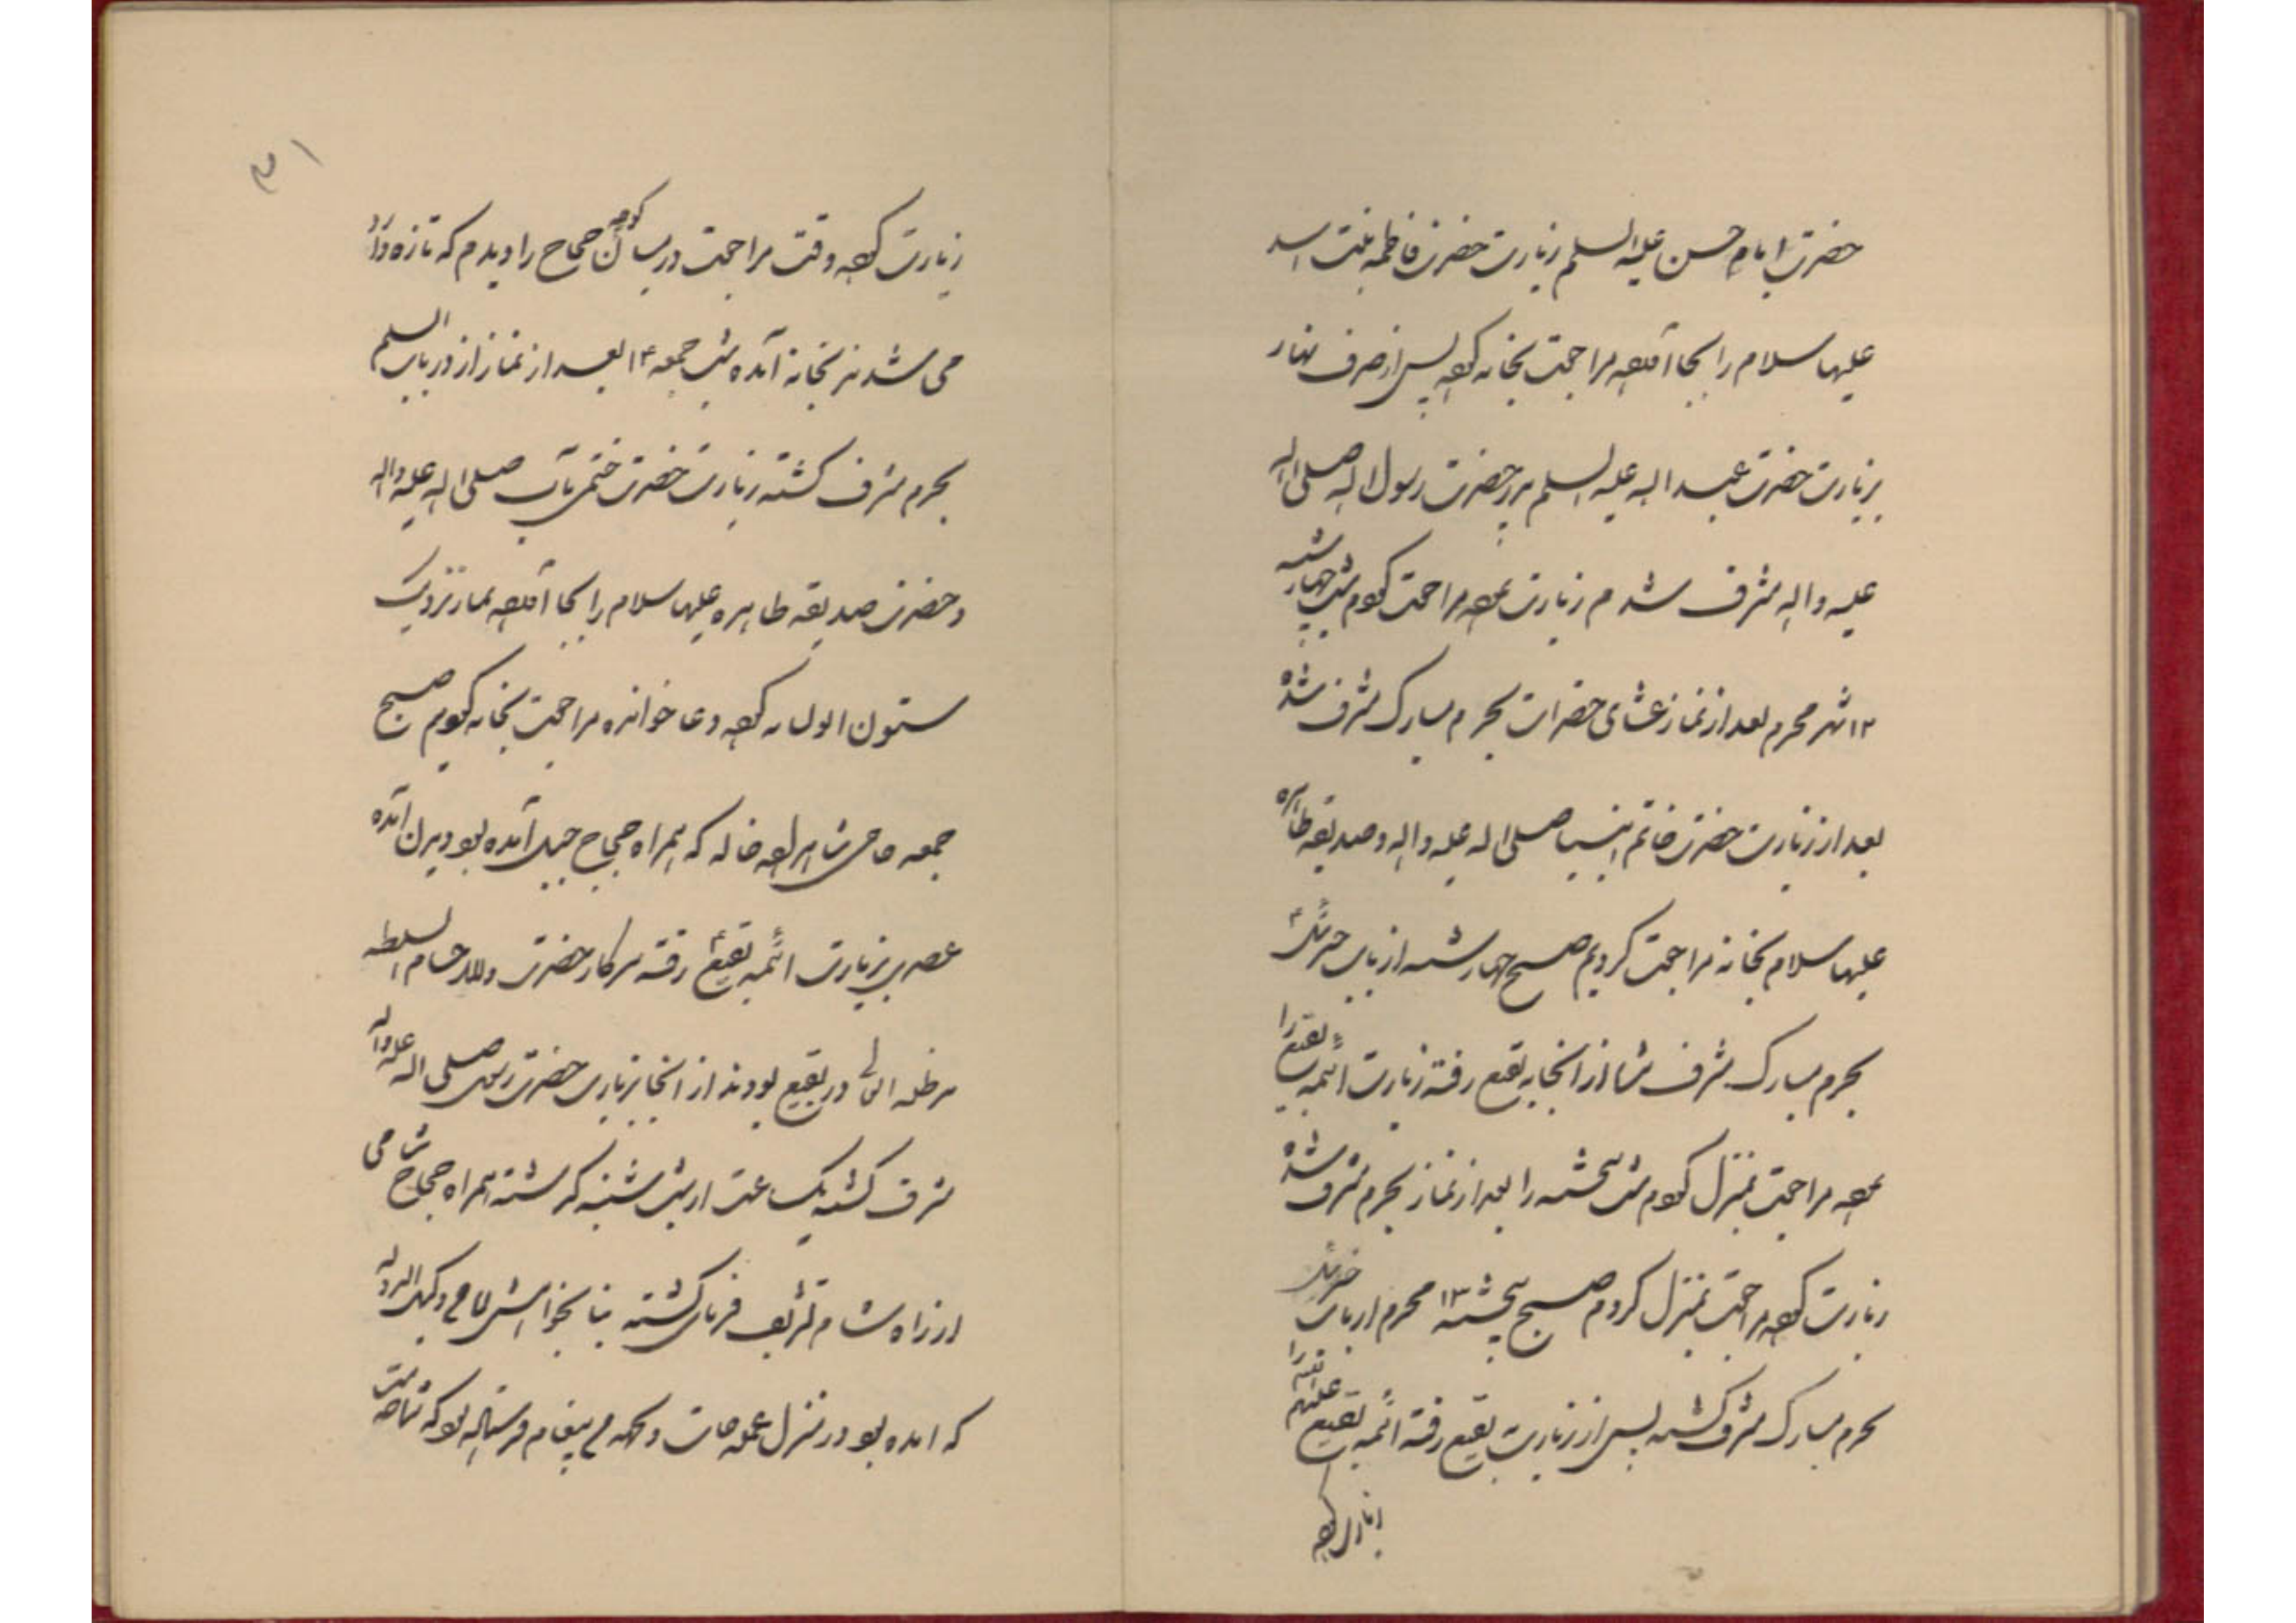 حضرت امام حسن علیه السلم زیارت حضرت فاطمه بنت اسد
علیها سلام را بجا آورده مراجعت بخانه کرده پس از صرف نهار
بزیارت حضرت عبد اله علیه السلم پدر حضرت رسول اله صلی اله
علیه و اله مشرف شدم زیارت نموده مراجعت کردم شب چهارشنبه
۱۲ شهر محرم بعد از نماز عشای حضرات بحرم مبارک مشرف شده
بعد از زیارت حضرت خاتم انبیا صلی اله علیه و اله و صدیقه طاهره
علیها سلام بخانه مراجعت کردیم صبح چهارشنبه از باب جبرئیل ع
بحرم مبارک مشرف شده از انجا به بقیع رفته زیارت ائمه بقیع را
نموده مراجعت بمنزل کردم شب پنجشنبه را بعد از نماز بحرم مشرف شده
زیارت کرده مراجعت بمنزل کردم صبح پنجشنبه ۱۳ محرم از باب جبرئیل
بحرم مبارک مشرف گشته پس از زیارت بقیع رفته ائمه بقیع علیهم
زیارت کرده
۳۱
زیارت کرده وقت مراجعت در میان کوچه حجاج را دیدم که تازه وارد
می شدند بخانه آمده شب جمعه ۱۴ بعد از نماز از در باب السلم
بحرم مشرف گشته زیارت حضرت ختمی مآب صلی اله علیه و اله
و حضرت صدیقه طاهره علیها سلام را بجا آورده نماز نزدیک
ستون ابولبابه کرده دعا خوانده مراجعت بخانه کردیم صبح
جمعه حاجی شاهزاده خاله که همراه حجاج جبل آمده بود دیدن آمده
عصری بزیارت ائمه بقیع ع رفته سرکار حضرت والا حسام السلطنه
مدظله العالی در بقیع بودند از انجا بزیارت حضرت رسول صلی اله علیه و آله
مشرف گشته یک ساعت از شب شنبه گذشته همراه حجاج شامی
از راه شام تشریف فرمای گشته بنا بخواهش حاجی وکیل الدوله
که امده بود در منزل عمه جات و پیغام فرستاده بود که